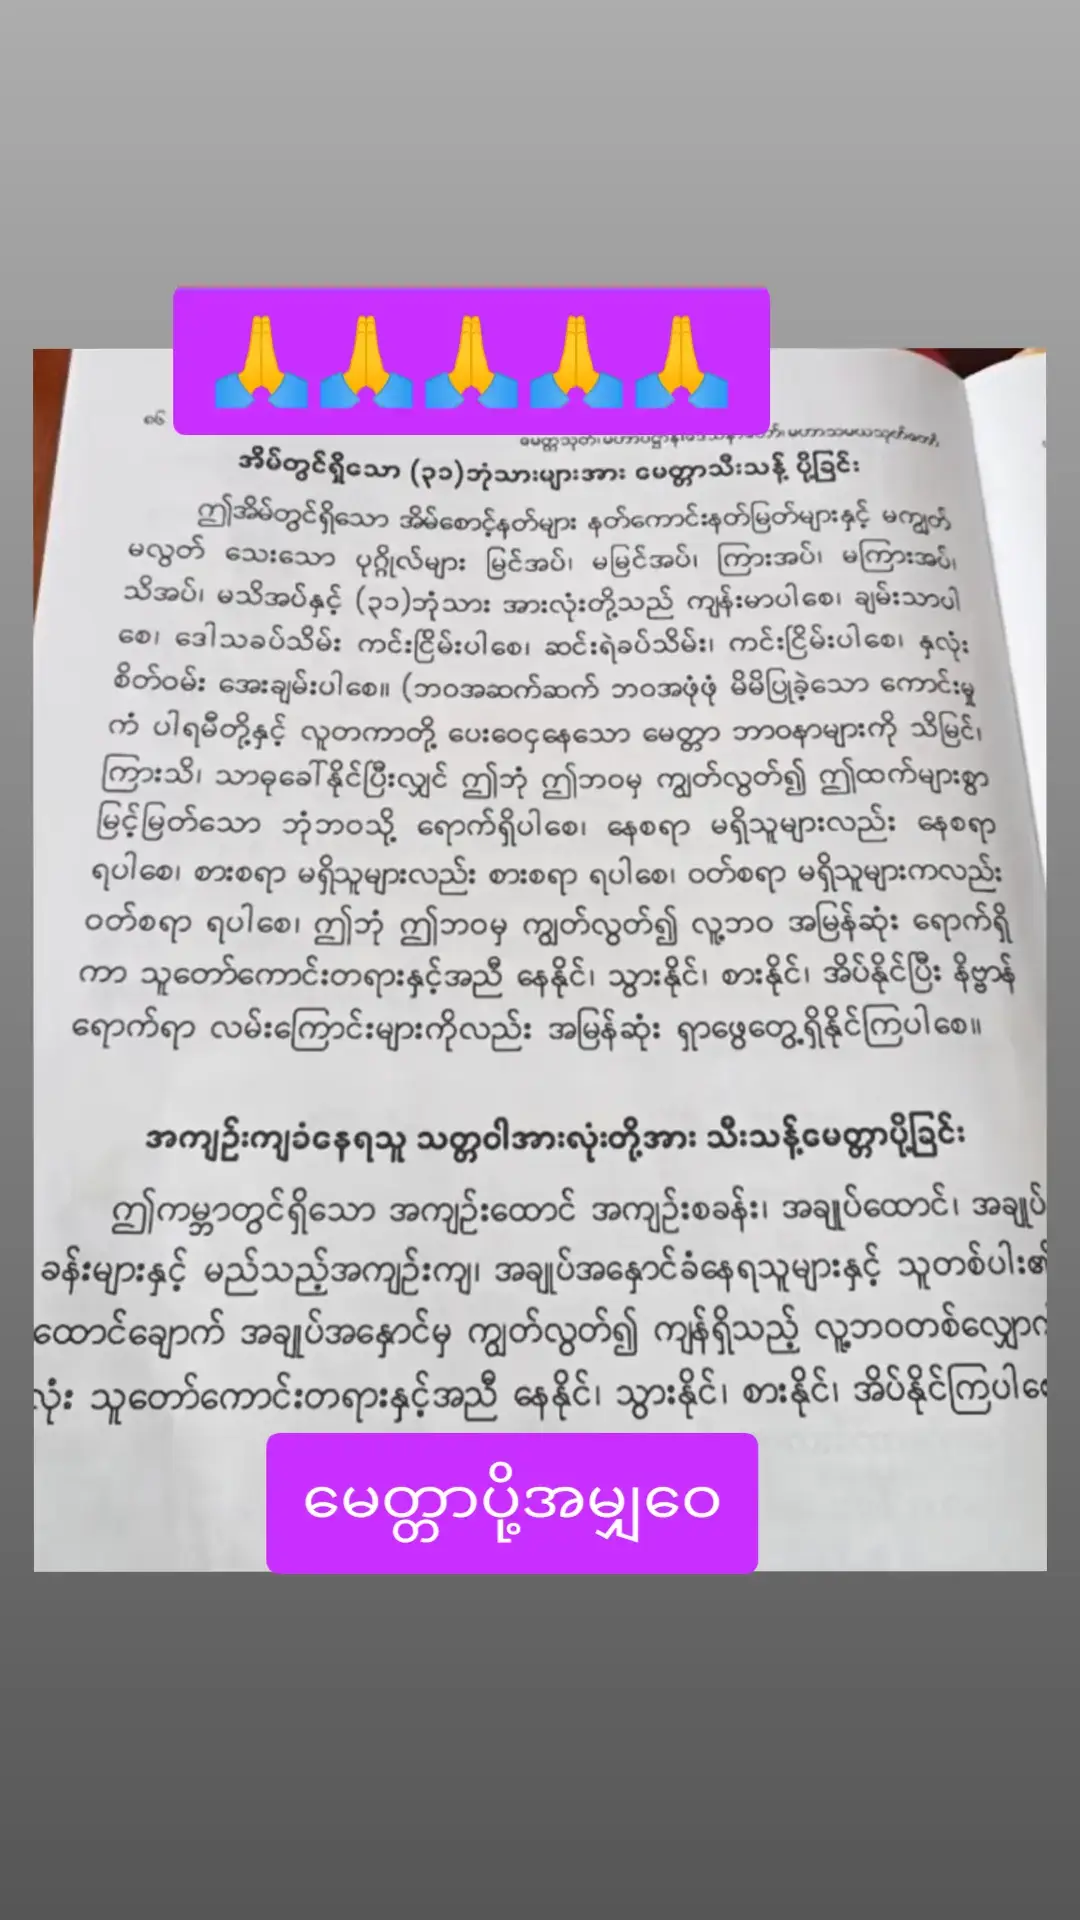 ၈၆
မေတ္တသုတ်၊ မဟာပဋ္ဌာန်းဒေသနာတော်၊ မဟာသမယသုတ်တော်
အိမ်တွင်ရှိသော (၃၁)ဘုံသားများအား မေတ္တာသီးသန့် ပို့ခြင်း
ဤအိမ်တွင်ရှိသော အိမ်စောင့်နတ်များ နတ်ကောင်းနတ်မြတ်များနှင့် မကျွတ်
မလွတ် သေးသော ပုဂ္ဂိုလ်များ မြင်အပ်၊ မမြင်အပ်၊ ကြားအပ်၊ မကြားအပ်၊
သိအပ်၊ မသိအပ်နှင့် (၃၁)ဘုံသား အားလုံးတို့သည် ကျန်းမာပါစေ၊ ချမ်းသာပါ
စေ၊ ဒေါသခပ်သိမ်း ကင်းငြိမ်းပါစေ၊ ဆင်းရဲခပ်သိမ်း၊ ကင်းငြိမ်းပါစေ၊ နှလုံး
စိတ်ဝမ်း အေးချမ်းပါစေ။ (ဘဝအဆက်ဆက် ဘဝအဖုံဖုံ မိမိပြုခဲ့သော ကောင်းမှု
ကံ ပါရမီတို့နှင့် လူတကာတို့ ပေးဝေငှနေသော မေတ္တာ ဘာဝနာများကို သိမြင်၊
ကြားသိ၊ သာဓုခေါ်နိုင်ပြီးလျှင် ဤဘုံ ဤဘဝမှ ကျွတ်လွတ်၍ ဤထက်များစွာ
မြင့်မြတ်သော ဘုံဘဝသို့ ရောက်ရှိပါစေ၊ နေစရာ မရှိသူများလည်း နေစရာ
ရပါစေ၊ စားစရာ မရှိသူများလည်း စားစရာ ရပါစေ၊ ဝတ်စရာ မရှိသူများကလည်း
ဝတ်စရာ ရပါစေ၊ ဤဘုံ ဤဘဝမှ ကျွတ်လွတ်၍ လူ့ဘဝ အမြန်ဆုံး ရောက်ရှိ
ကာ သူတော်ကောင်းတရားနှင့်အညီ နေနိုင်၊ သွားနိုင်၊ စားနိုင်၊ အိပ်နိုင်ပြီး နိဗ္ဗာန်
ရောက်ရာ လမ်းကြောင်းများကိုလည်း အမြန်ဆုံး ရှာဖွေတွေ့ရှိနိုင်ကြပါစေ။
အကျဉ်းကျခံနေရသူ သတ္တဝါအားလုံးတို့အား သီးသန့်မေတ္တာပို့ခြင်း
ဤကမ္ဘာတွင်ရှိသော အကျဉ်းထောင် အကျဉ်းစခန်း၊ အချုပ်ထောင်၊ အချုပ်
ခန်းများနှင့် မည်သည့်အကျဉ်းကျ၊ အချုပ်အနှောင်ခံနေရသူများနှင့် သူတစ်ပါး၏
ထောင်ချောက် အချုပ်အနှောင်မှ ကျွတ်လွတ်၍ ကျန်ရှိသည့် လူ့ဘဝတစ်လျှောက်
လုံး သူတော်ကောင်းတရားနှင့်အညီ နေနိုင်၊ သွားနိုင်၊ စားနိုင်၊ အိပ်နိုင်ကြပါစေ
မေတ္တာပို့အမျှဝေ